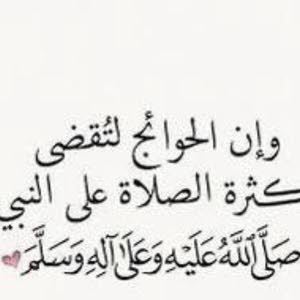 وإن الحوائج لتُقضى
كثرة الصلاة على النبي
صَلَّى اللَّهُ عَلَيْهِ وَعَلَىٰ آلِهِ وَسَلَّمَ